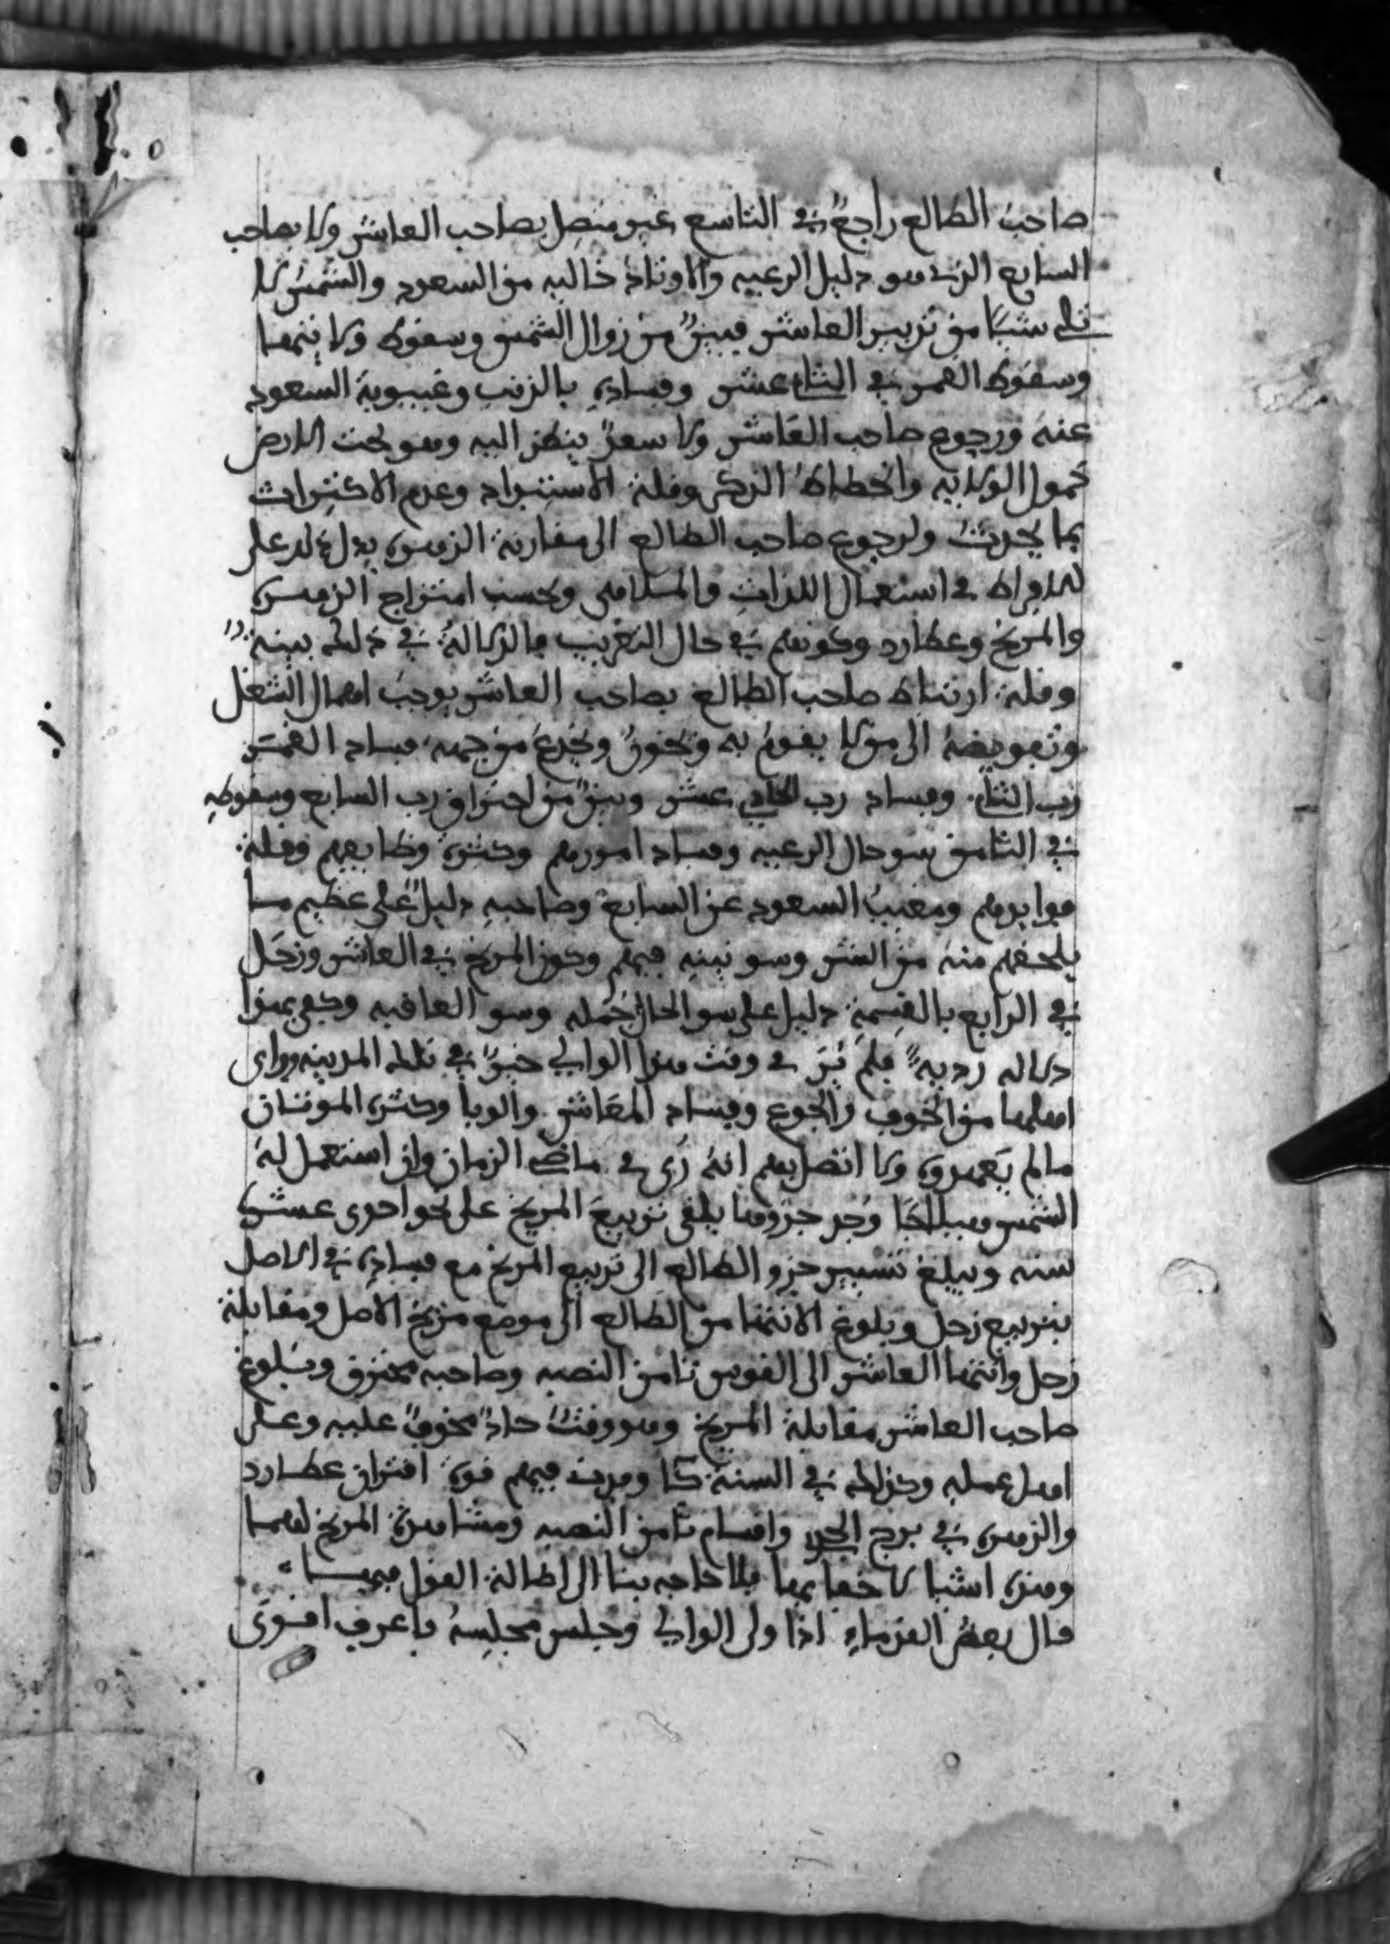 صاحب الطالع راجع في التاسع غير متصل بصاحب العاشر ولا بصاحب
السابع الذي هو دليل الرعيه والاوتاد خاليه من السعود والشمس لا
تلى شيا من تدبير العاشر فبين من زوال الشمس وسقوط
وسقوط القمر في الثاني عشر وفساده بالذنب وغيبوبة السعود
عنه ورجوع صاحب العاشر ولا سعد ينظر اليه وهو تحت الارض
خمول الولايه وانحطاط الذكر وقلة الاستبداد وعدم الاكتراث
بما يحدث ولرجوع صاحب الطالع الى مقارنة الزهرة يدل على
الافراط في استعمال اللذات والملاهي وبحسب امتزاج الزهرة
والمريخ وعطارد وكونهم في حال التغريب فالدلالة في ذلك بينة
وقلة ارتباط صاحب الطالع بصاحب العاشر يوجب اهمال الشغل
وتفويضه الى من لا يقوم به ويخون ويخدع من جهه فساد القمر
رب الثاني وفساد رب الحادي عشر وبين من احتراق رب السابع وسقوطه
في الثامن سو حال الرعيه وفساد امورهم وكثرة وظايفهم وقلة
فوايدهم ومغيب السعود عن السابع وصاحبه دليل على عظيم ما
يلحقهم منه من الشر وسو نيته فيهم وكون المريخ في العاشر وزحل
في الرابع بالقسمة دليل على سو الحال جمله وسو العاقبه وكفى بهذا
دلاله رديه فلم ير في وقت هذا الوالي خير في تلك المدينه وراى
اهلها من الخوف والجوع وفساد المعاش والوبا وكثرة الموتان
مالم يعهدوه ولا اتصل بهم انه رى في ماضي الزمان وان استعمل له
الشمس هيلاجا وجد جزوها يلقى تربيع المريخ على نحو احدى عشرة
سنه ويبلغ تسيير جزو الطالع الى تربيع المريخ مع فساده في الاصل
بتربيع زحل وبلوغ الانتها من الطالع الى موضع مريخ الاصل ومقابلة
زحل وانتها العاشر الى القوس ثامن النصبه وصاحبه محترق وبلوغ
صاحب العاشر مقابلة المريخ وهو وقت حاد مخوف عليه وعلى
اهل عمله وكذلك في السنة كا وحدث فيهم قوة اقتران عطارد
والزهرة في برج الجدي واقسام ثامن النصبه ومشاهدة المريخ لهما
وهذه اشيا لا خفا بها فلا حاجه بنا الى اطالة القول فيها
قال بعض القدماء اذا ولى الوالي وجلس مجلسه فاعرف اقوى